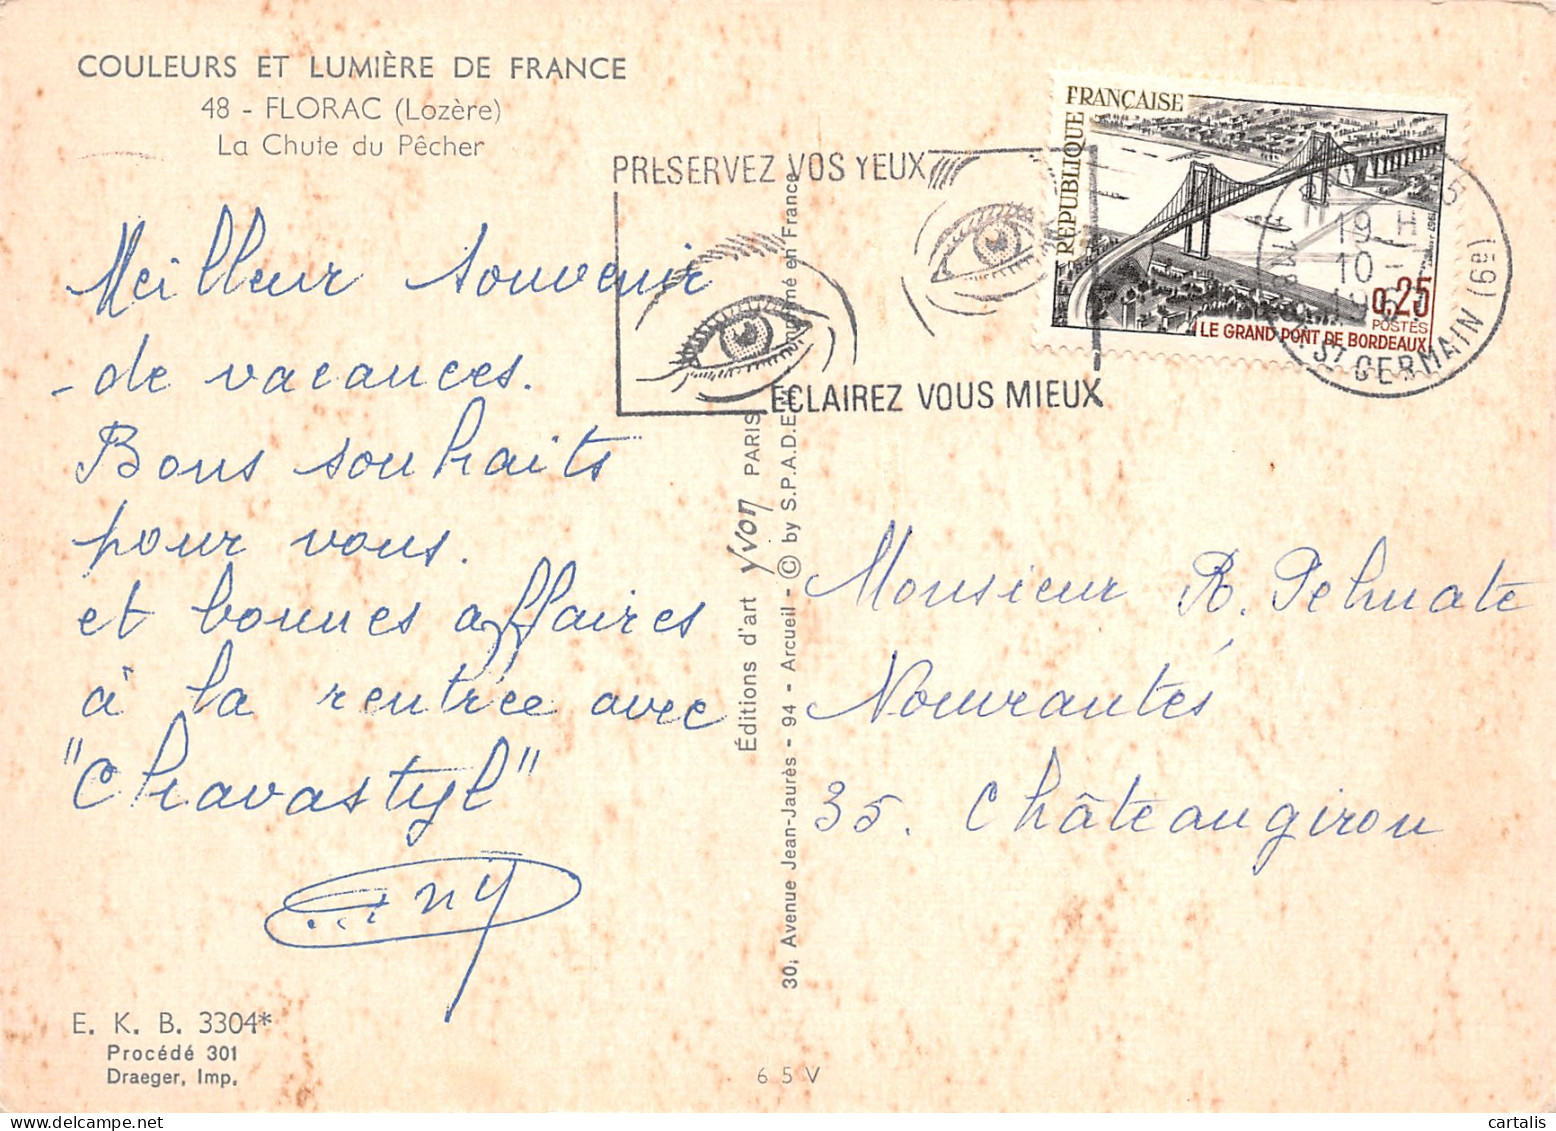 COULEURS ET LUMIÈRE DE FRANCE
48 - FLORAC (Lozère)
La Chute du Pêcher
Meilleur souvenir
- de vacances.
Bons souhaits
pour vous.
et bonnes affaires
à la rentrée avec
"Chavastyl"
E. K. B. 3304*
Procédé 301
Draeger, Imp.
PRESERVEZ VOS YEUX
ECLAIREZ VOUS MIEUX
RÉPUBLIQUE FRANÇAISE
0,25
POSTES
LE GRAND PONT DE BORDEAUX
19 H
10 - 7
ST GERMAIN
Éditions d'art Yvon PARIS
30, Avenue Jean-Jaurès - 94 - Arcueil - © by S.P.A.D.E.M.
Imprimé en France
6 5 V
Monsieur R.
35. Châteaugiron
cartalis